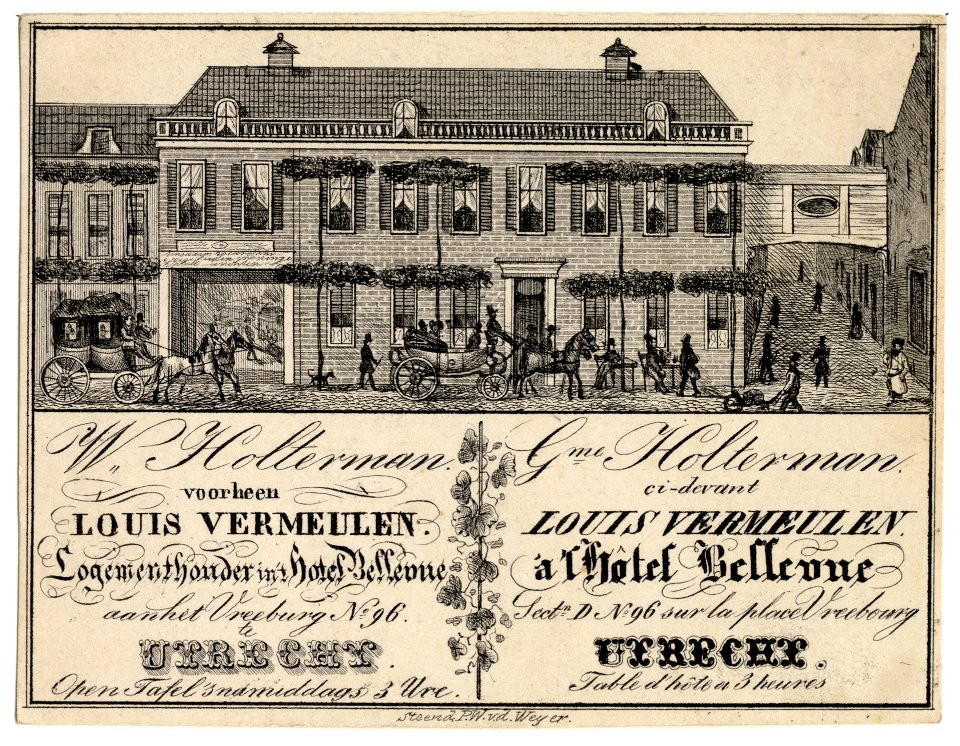 W. Holterman.
voorheen
LOUIS VERMEULEN.
Logementhouder in 't Hotel Bellevue
aan het Vreeburg No. 96.
te
UTRECHT.
Open Tafel 's namiddags 3 Ure.
Gme Holterman.
ci-devant
LOUIS VERMEULEN.
à l'Hôtel Bellevue
Sectn D No. 96 sur la place Vreebourg
UTRECHT.
Table d'hôte a 3 heures
Steend. P.W.v.d. Weyer.